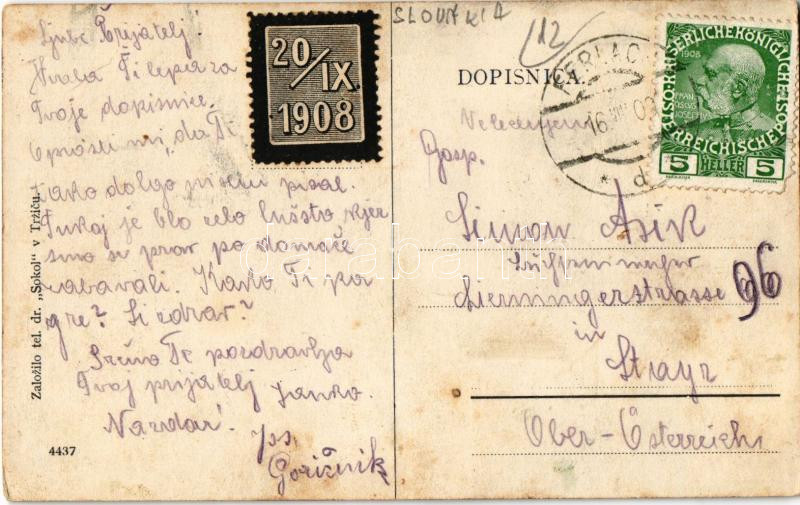 Ljubi Prijatelj.
Hvala Ti lepa za
Tvoje dopisnice.
Oprosti mi, da Ti
tako dolgo nisem pisal.
Tukaj je blo zelo luštno kjer
smo si prav po domače
zabavali. Kako Ti pa
gre? Si zdrav?
Srčno Te pozdravlja
Tvoj prijatelj Janko.
Nazdar!
Goričnik
Založilo tel. dr. „Sokol" v Tržiču.
4437
20/IX
1908
SLOVAKIA
12
DOPISNICA.
FERLACH
16
d
KAISERLICHE KÖNIGLICHE
ÖSTERREICHISCHE POST
1908
5 HELLER 5
Gosp.
Simon Ašik
Sierningerstrasse 96
in
Stayr
Ober-Österreich
darabanth